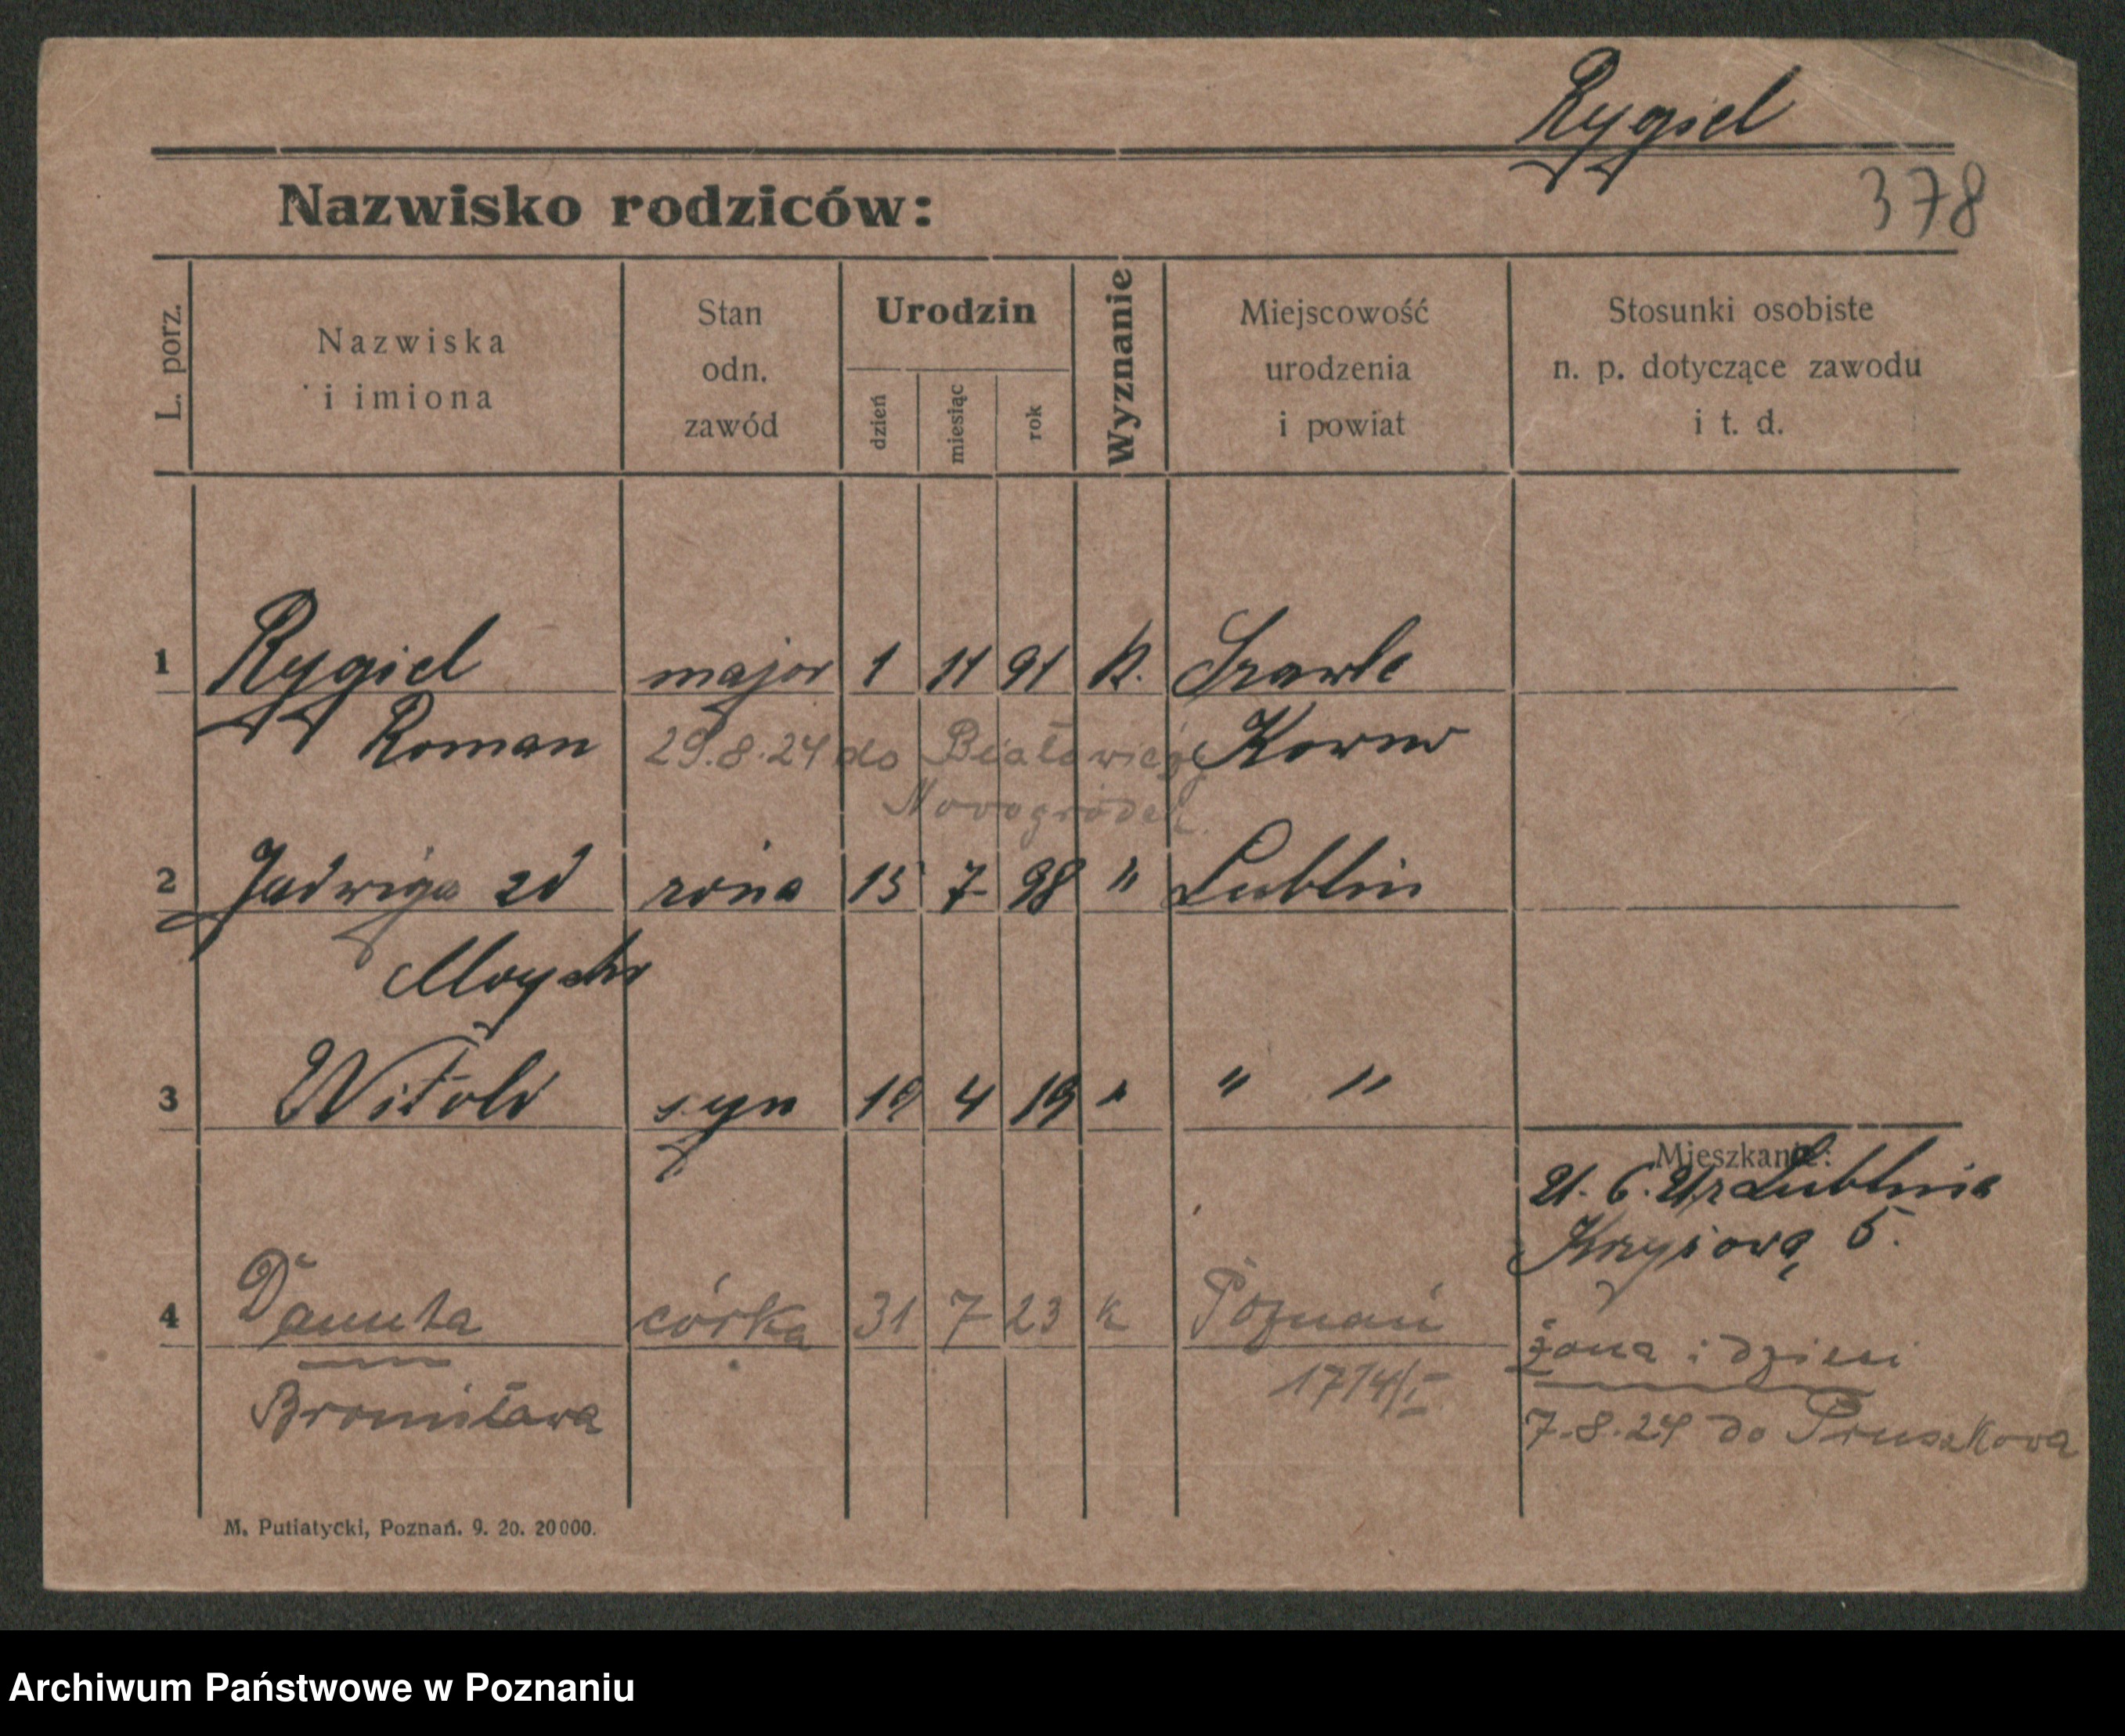 Rygiel
Nazwisko rodziców:
378
L. porz.
Nazwiska
i imiona
Stan
odn.
zawód
Urodzin
dzień
miesiąc
rok
Wyznanie
Miejscowość
urodzenia
i powiat
Stosunki osobiste
n. p. dotyczące zawodu
i t. d.
1 Rygiel major 1 11 91 k. Szawle
Roman 29.8.24 do Białowieży Kowno
Nowogródek.
2 Jadwiga zd żona 15 7 98 " Lublin
3 Witold syn 19 4 19 " " "
Mieszkanie:
21. 6. 21 z Lublina
Krzyżowa 5.
4 Danuta córka 31 7 23 k Poznań
żona i dzieci
1774/I
Bronisława
7.8.24 do Pruszkowa
M. Putiatycki, Poznań. 9. 20. 20000.
Archiwum Państwowe w Poznaniu